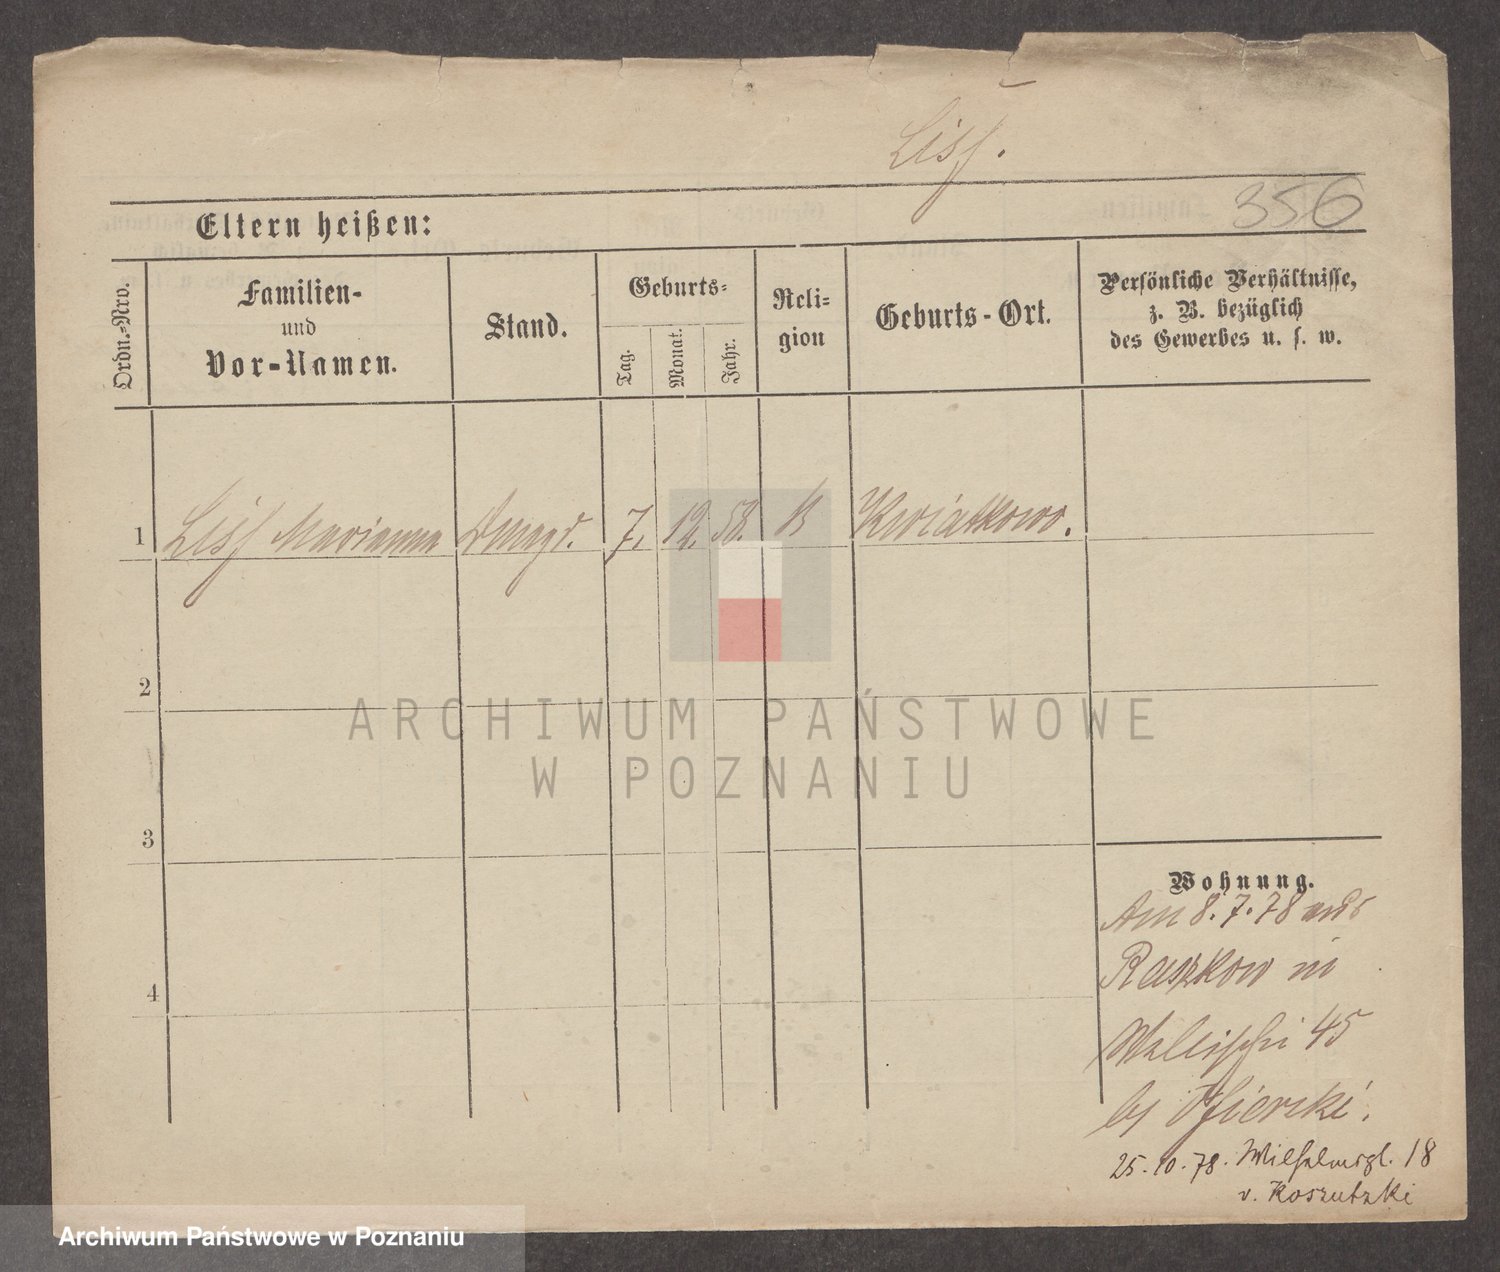 Liss.
356
Eltern heißen:
Ordn.-Nro.
Familien-
und
Vor-Namen.
Stand.
Geburts-
Tag.
Monat.
Jahr.
Reli-
gion
Geburts-Ort.
Persönliche Verhältnisse,
z. B. bezüglich
des Gewerbes u. s. w.
1 Liss Marianna Dmagd. 7. 12. 58. K Kwiatkowo.
2
3
4
Wohnung.
Am 8.7.78 aus
Raszkow in
Wallischei 45
bei
25.10.78. Wilhelmspl. 18
v. Koszutski
ARCHIWUM PAŃSTWOWE
W POZNANIU
Archiwum Państwowe w Poznaniu